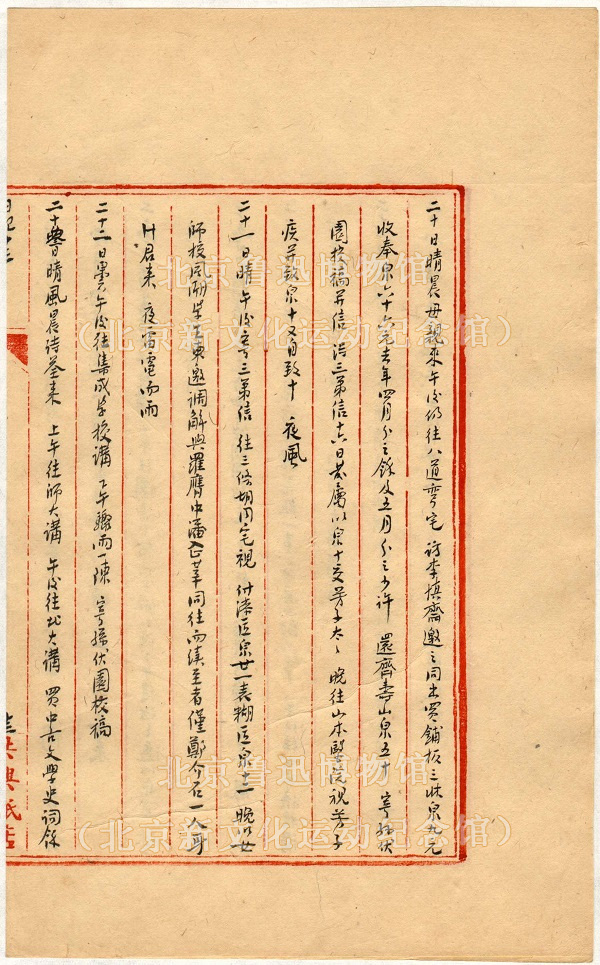 二十日晴晨母親來午後仍往八道彎宅 訪李慎齋邀之同出買鋪板三床泉九元
收奉泉六十六元去年四月分之餘及五月分之少許 還齊壽山泉五十 寄孫伏
園校稿并信 得三弟信十六日發屬以泉十交芳子太々 晚往山本醫院視芳子
疾并致泉十又自致十 夜風
二十一日晴午後寄三弟信 往三條胡同宅視 付漆匠泉廿一表糊匠泉十二 晚以女
師校風潮學生柬邀調解與羅膺中潘企莘同往而續至者僅鄭介石一人耳
H君来 夜雷電而雨
二十二日曇午後往集成學校講 下午驟雨一陳 寄孫伏園校稿
二十三日晴風晨待荃来 上午往師大講 午後往北大講 買中古文學史詞餘
北京鲁迅博物馆
（北京新文化运动纪念馆）
北京鲁迅博物馆
（北京新文化运动纪念馆）